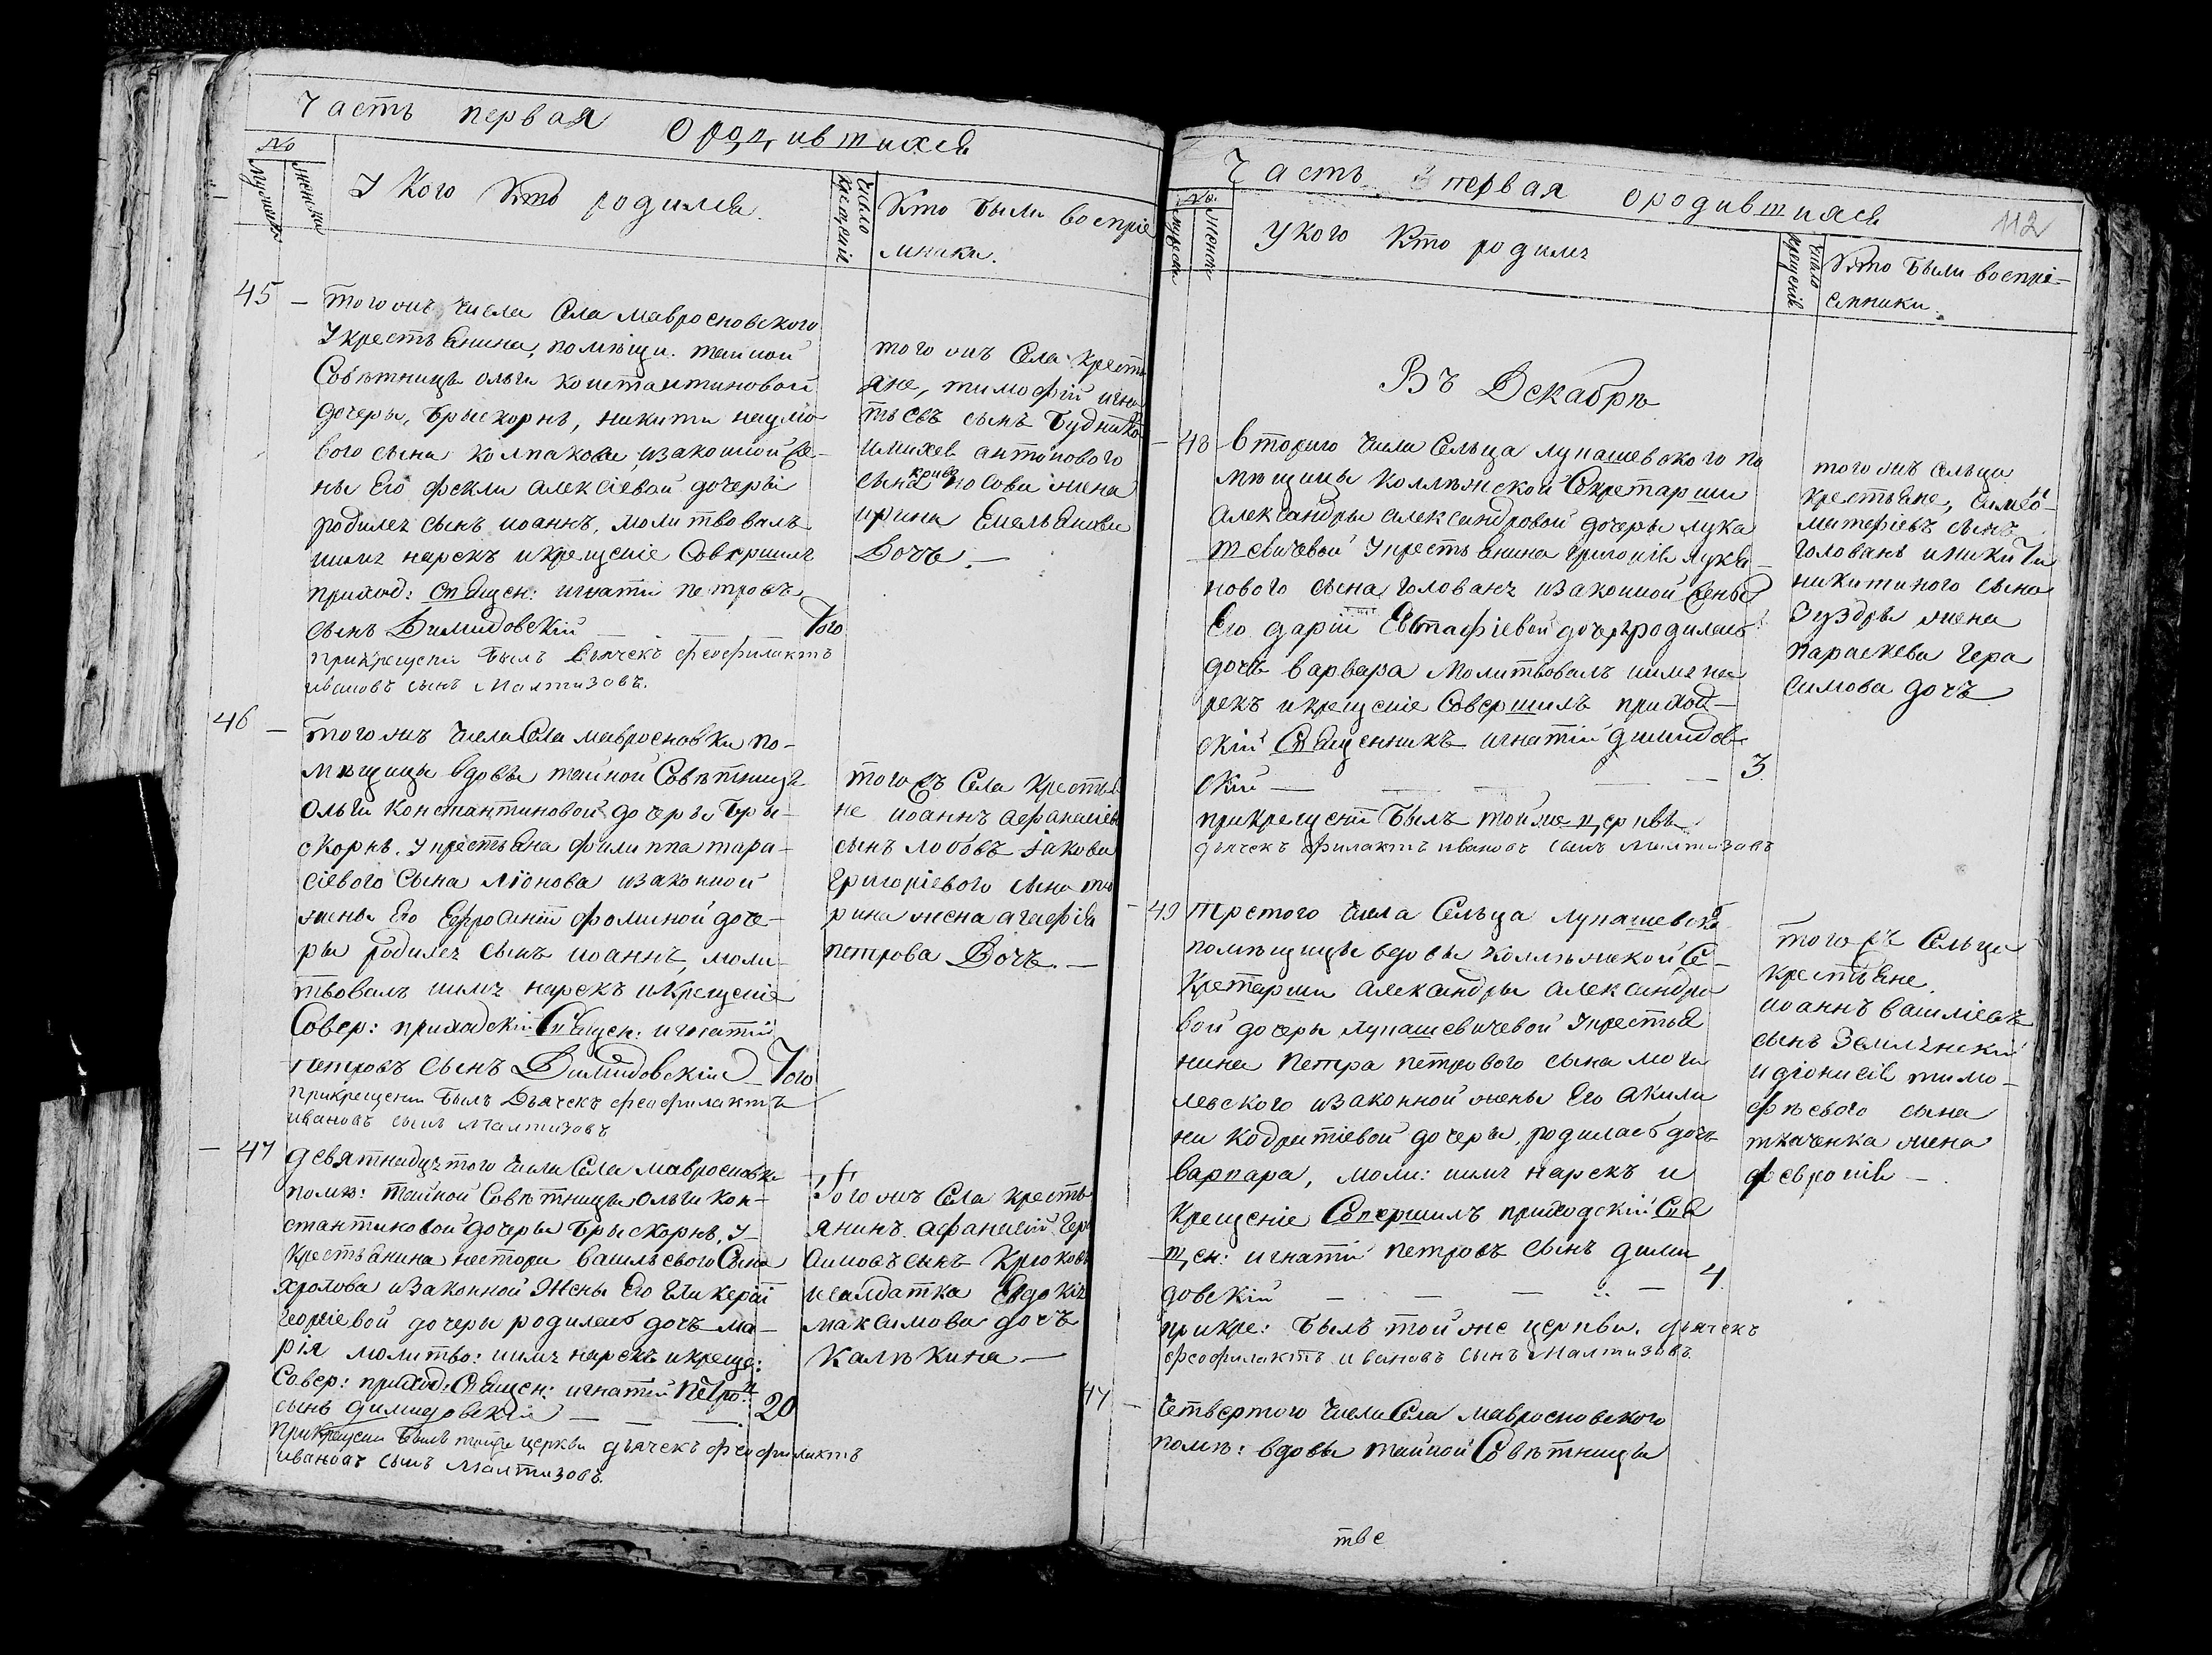 Часть первая о родившихся
№
мужска
женска
У кого кто родился.
Число крещенія
Кто были воспріе
мники.
45 — того жъ числа села мавросновского
У крестьянина, помѣщи. тайной
Совѣтницы ольги константиновой
дочеры, Брыскорнъ, никиты наумо
вого сына колпакова изаконной же-
ны Его феклы алексіевой дочеры
родился сынъ иоаннъ, молитвовалъ
имя нарекъ икрещеніе Совершилъ
приход: Священ: игнатій петровъ
сынъ Дилидовскій Того
прикрещеніи былъ дьячекъ феофилактъ
ивановъ сынъ
того жъ Села крестья
яне, тимофій игна
тьевъ сынъ
антонового
сына жена
ирина Емельянова
Дочь. —
46 — того жъ числа Села мавросновки по-
мѣщицы вдовы тайной Совѣтницы
Ольги Константиновой дочеры Бры-
скорнъ. У крестьяна филиппа тара-
сіевого Сына изаконной
жены Его Ефросиніи фоминой доче-
ры родился Сынъ иоаннъ, моли-
твовалъ имя нарекъ икрещеніе
Совер: приходскій Священ: игнатій
петровъ Сынъ Дилидовскій Того
прикрещеніи былъ Дьячекъ феофилактъ
ивановъ сынъ
того жъ Села Крестья
не иоаннъ афанасіевъ
сынъ лобовъ якова
Григоріевого сына
жена агафія
петрова Дочь. —
— 47 девятнадцятого числа Села мавросновки
помѣ: тайной Совѣтницы ольги кон-
стантиновой дочеры Брыскорнъ, У
крестьянина нестора васильевого Сына
хролова изаконной Жены Его Гликеріи
дочеры родилась дочь ма-
рія молитво: имя нарекъ икреще:
Совер: приход: Священ: игнатій Петро:
сынъ дилидовскій — — — 20
Прикрещеніи былъ тойже церкви дьячекъ феофилактъ
ивановъ сынъ
Того жъ Села кресть
янинъ афанасій Гера
симовъ сынъ Крюковъ
исалдатка Евдокія
максимова дочь
Калѣкина —
Часть первая о родившихся
112
№.
мужска
женска
У кого кто родилъ
Число крещенія
Кто были воспрі-
емники.
Въ Декабрѣ
— 48 второго числа Сельца лупашевского по
мѣщицы коллежской Секретарши
александры александровой дочеры лупа
шевичевой У крестьянина Григорія лукья-
нового сына Голована изаконной жены
Его даріи Евстафіевой дочеры родилась
дочь варвара Молитвовалъ имя на
рекъ икрещеніе Совершилъ приход-
скій Священникъ игнатій дилидов-
скій — — — — — 3.
прикрещеніи Былъ той же церквѣ
дьячекъ филактъ ивановъ сынъ
того жъ сельца
крестьяне,
сынъ
голованъ иникиты
никитиного сына
жена
параскева Гера
симова дочь
— 49 третого числа Сельца лупашевско
помѣщицы вдовы коллежской Се-
кретарши александры александро
вой дочеры лупашевичевой У крестья
нина Петра петрового сына моги
левского изаконной жены Его Акили
ны дочеры, родилась дочь
варвара, моли: имя нарекъ и
крещеніе Совершилъ приходскій Свя
щен: игнатій петровъ сынъ дили
довскій — — — — 4.
прикре: былъ той же церкви. дьячекъ
феофилактъ ивановъ сынъ
того жъ Сельца
крестьяне
иоаннъ василіевъ
сынъ Землянскій
идіонисія тимо-
фѣевого сына
ткаченка жена
февронія —
47 — Четвертого числа Села мавросновского
помѣ: вдовы тайной Совѣтницы
тве